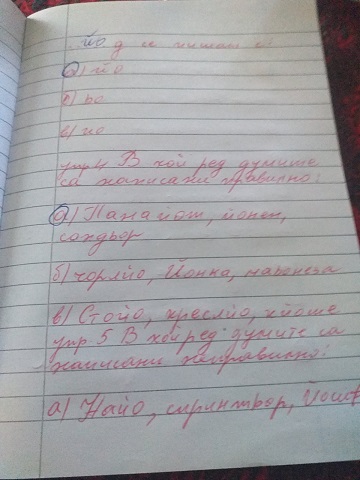 йо д се пишат с:
а) йо
б) ьо
в) ио
упр 4 В кой ред думите
са написани правилно:
а) Панайот, йонен,
сондьор
б) чорлйо, Йонка, майонеза
в) Стойо, креслйо, кйоше
упр 5 В кой ред думите са
написани неправилно:
а) Найо, спринтьор, Йосиф